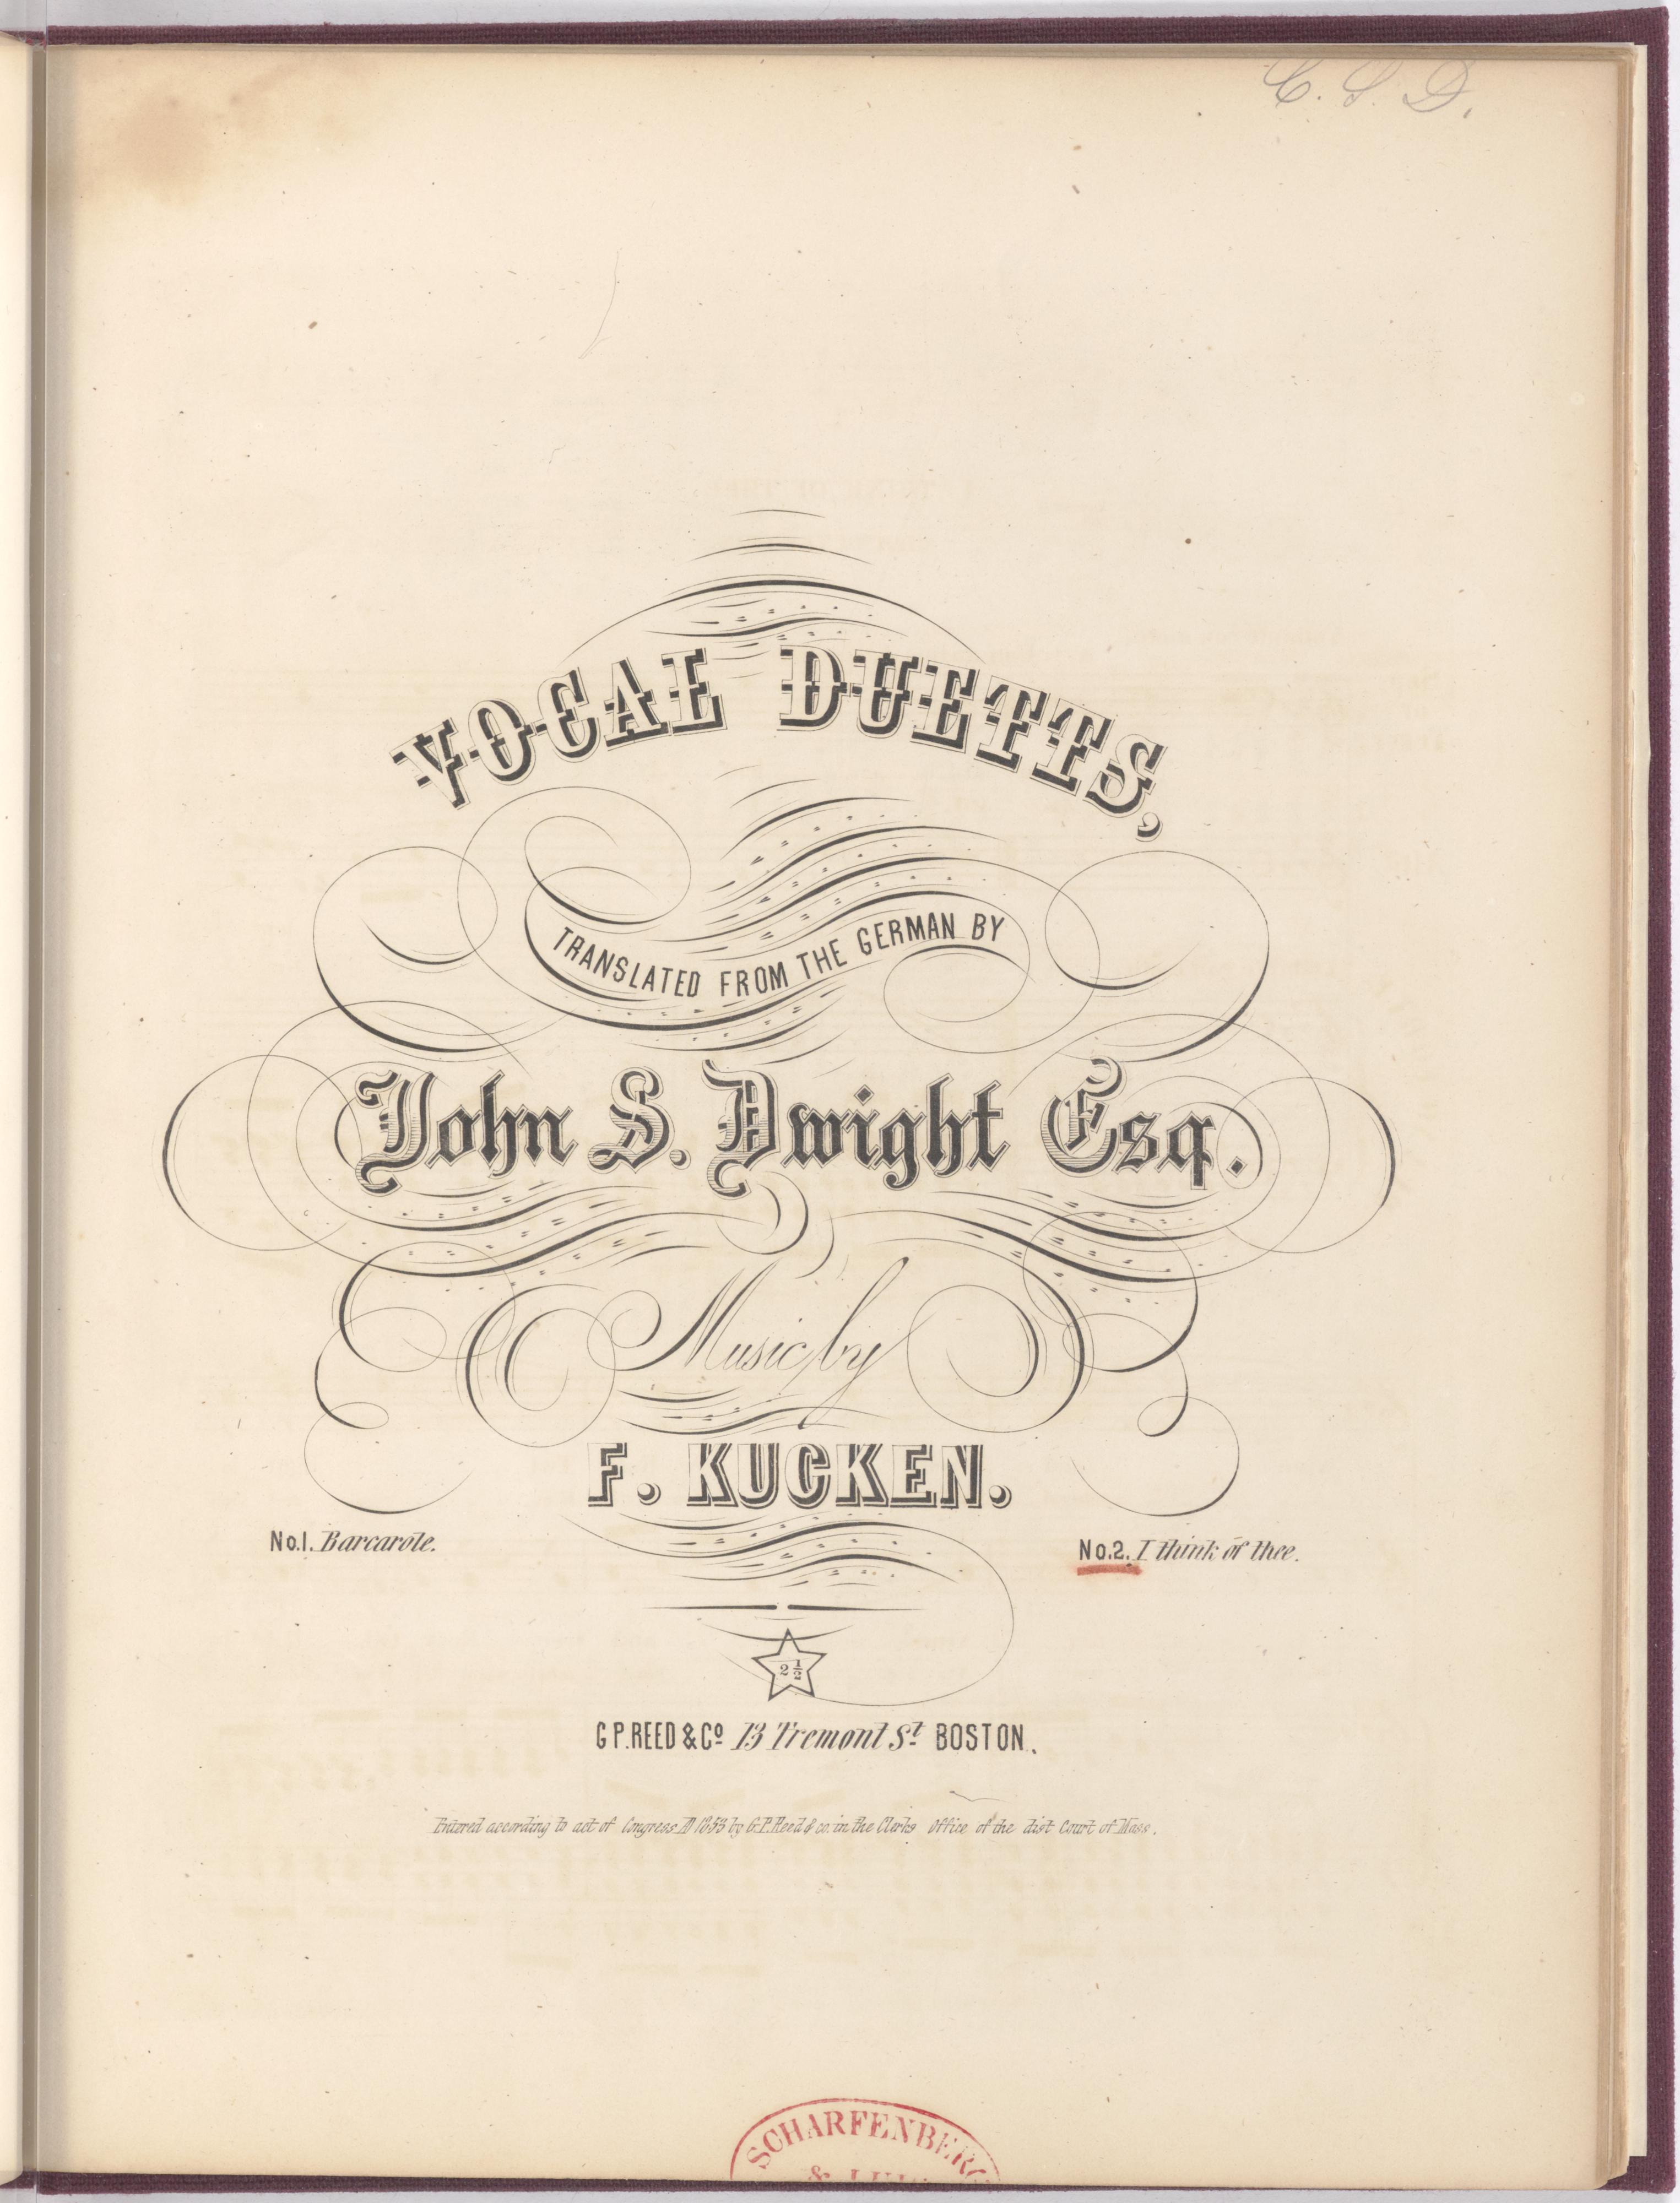 C. S. D.
VOCAL DUETTS,
TRANSLATED FROM THE GERMAN BY
John S. Dwight Esq.
Music by
F. KUCKEN.
No.1. Barcarole.
No.2. I think of thee.
2 1/2
G P. REED & Co. 13 Tremont St. BOSTON.
Entered according to act of Congress AD 1853 by G. P. Reed & co. in the Clerks Office of the dist Court of Mass.
SCHARFENBERG
&